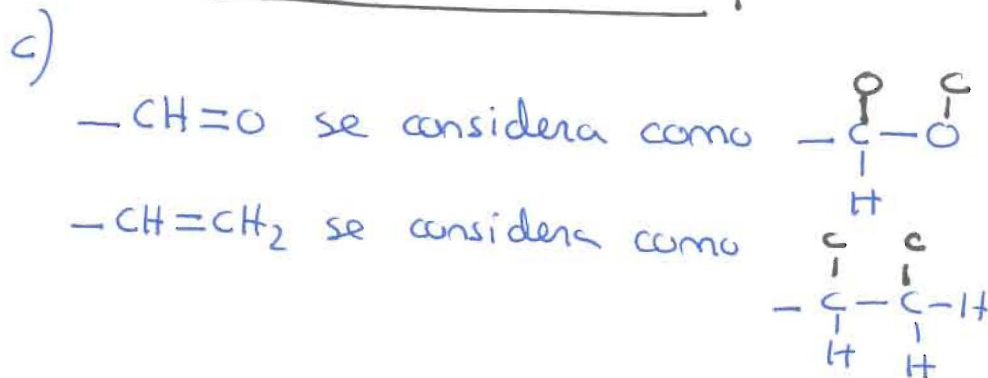 c)
—CH=O se considera como
O C
—C—O
H
—CH=CH₂ se considera como
C C
—C—C—H
H H